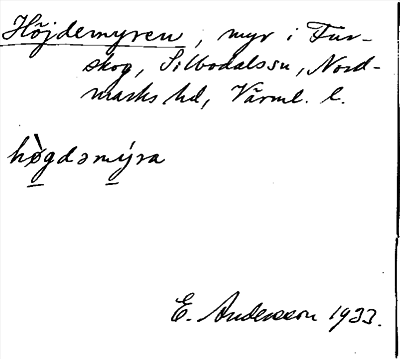 Höjdemyren, myr i Fur-
skog, Silbodals sn, Nord-
marks hd, Värml. l.
hø̀gdəmýra
E. Andersson 1933.